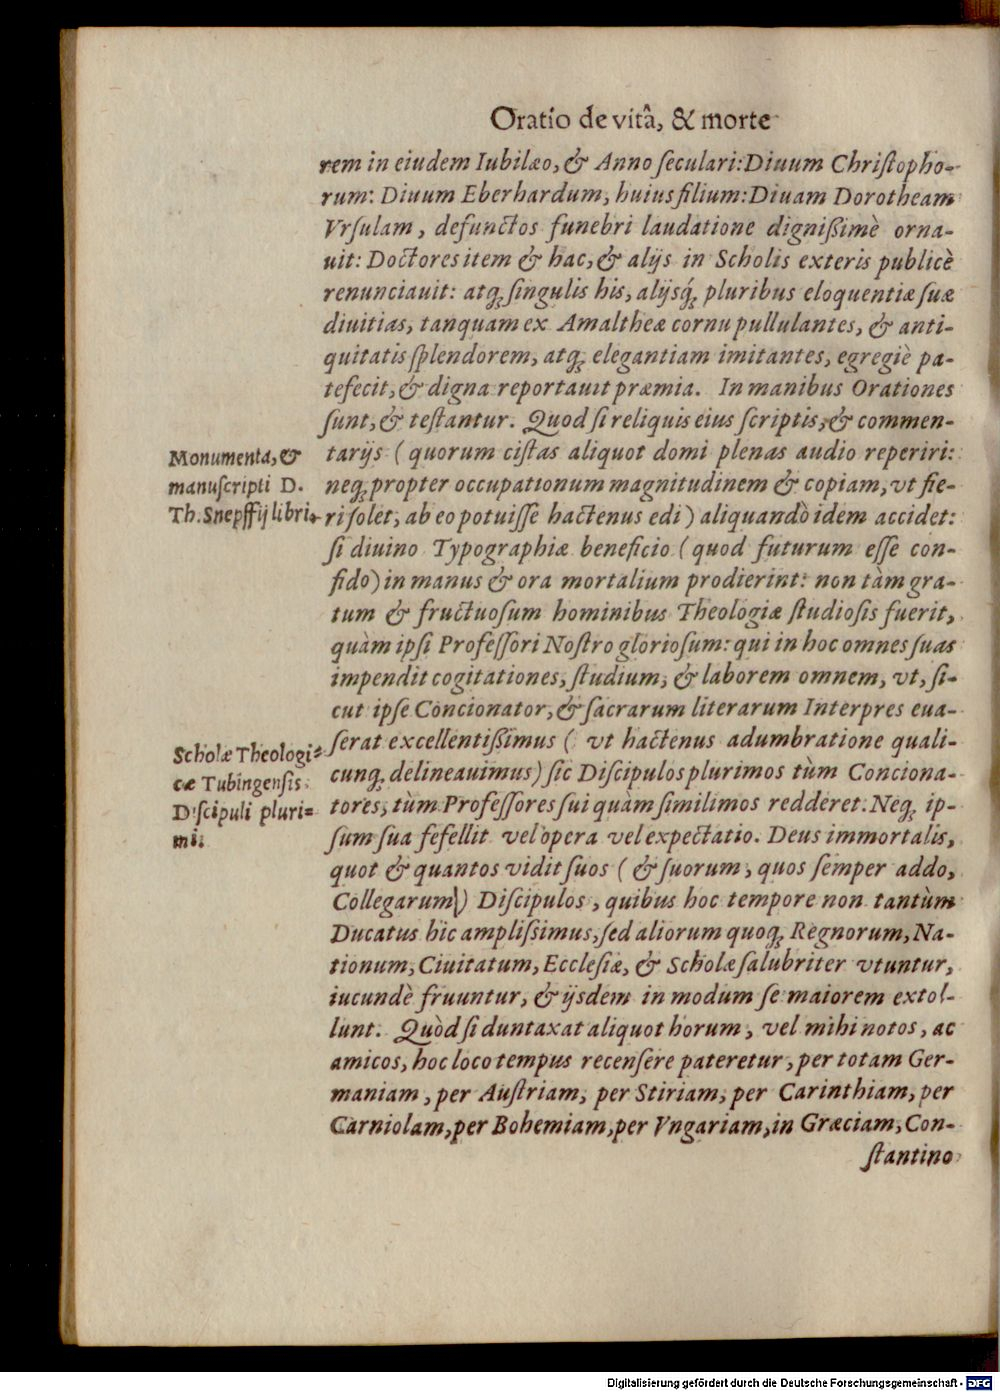 Oratio de vitâ, & morte
rem in eiudem Iubilæo, & Anno ſeculari: Diuum Chriſtopho-
rum: Diuum Eberhardum, huius filium: Diuam Dorotheam
Vrſulam, defunctos funebri laudatione digniſsimè orna-
uit: Doctores item & hac, & alijs in Scholis exteris publicè
renunciauit: atq́; ſingulis his, alijsq́; pluribus eloquentiæ ſuæ
diuitias, tanquam ex Amaltheæ cornu pullulantes, & anti-
quitatis ſplendorem, atq́; elegantiam imitantes, egregiè pa-
tefecit, & digna reportauit præmia. In manibus Orationes
ſunt, & teſtantur. Quod ſi reliquis eius ſcriptis, & commen-
Monumenta, &
manuſcripti D.
Th. Snepffij libri.
tarijs ( quorum ciſtas aliquot domi plenas audio reperiri:
neq́; propter occupationum magnitudinem & copiam, vt fie-
ri ſolet, ab eo potuiſſe hactenus edi ) aliquandò idem accidet:
ſi diuino Typographiæ beneficio ( quod futurum eſſe con-
fido ) in manus & ora mortalium prodierint: non tàm gra-
tum & fructuoſum hominibus Theologiæ ſtudioſis fuerit,
quàm ipſi Profeſſori Noſtro glorioſum: qui in hoc omnes ſuas
impendit cogitationes, ſtudium, & laborem omnem, vt, ſi-
cut ipſe Concionator, & ſacrarum literarum Interpres eua-
Scholæ Theologi-
cæ Tubingenſis
Diſcipuli pluri-
mi.
ſerat excellentiſsimus ( vt hactenus adumbratione quali-
cunq́; delineauimus ) ſic Diſcipulos plurimos tùm Conciona-
tores, tùm Profeſſores ſui quàm ſimilimos redderet. Neq́; ip-
ſum ſua fefellit vel opera vel expectatio. Deus immortalis,
quot & quantos vidit ſuos ( & ſuorum, quos ſemper addo,
Collegarum ) Diſcipulos, quibus hoc tempore non tantùm
Ducatus hic ampliſsimus, ſed aliorum quoq́; Regnorum, Na-
tionum, Ciuitatum, Eccleſiæ, & Scholæ ſalubriter vtuntur,
iucundè fruuntur, & ijsdem in modum ſe maiorem extol-
lunt. Quòd ſi duntaxat aliquot horum, vel mihi notos, ac
amicos, hoc loco tempus recenſere pateretur, per totam Ger-
maniam, per Auſtriam, per Stiriam, per Carinthiam, per
Carniolam, per Bohemiam, per Vngariam, in Græciam, Con-
ſtantino
Digitalisierung gefördert durch die Deutsche Forschungsgemeinschaft - DFG